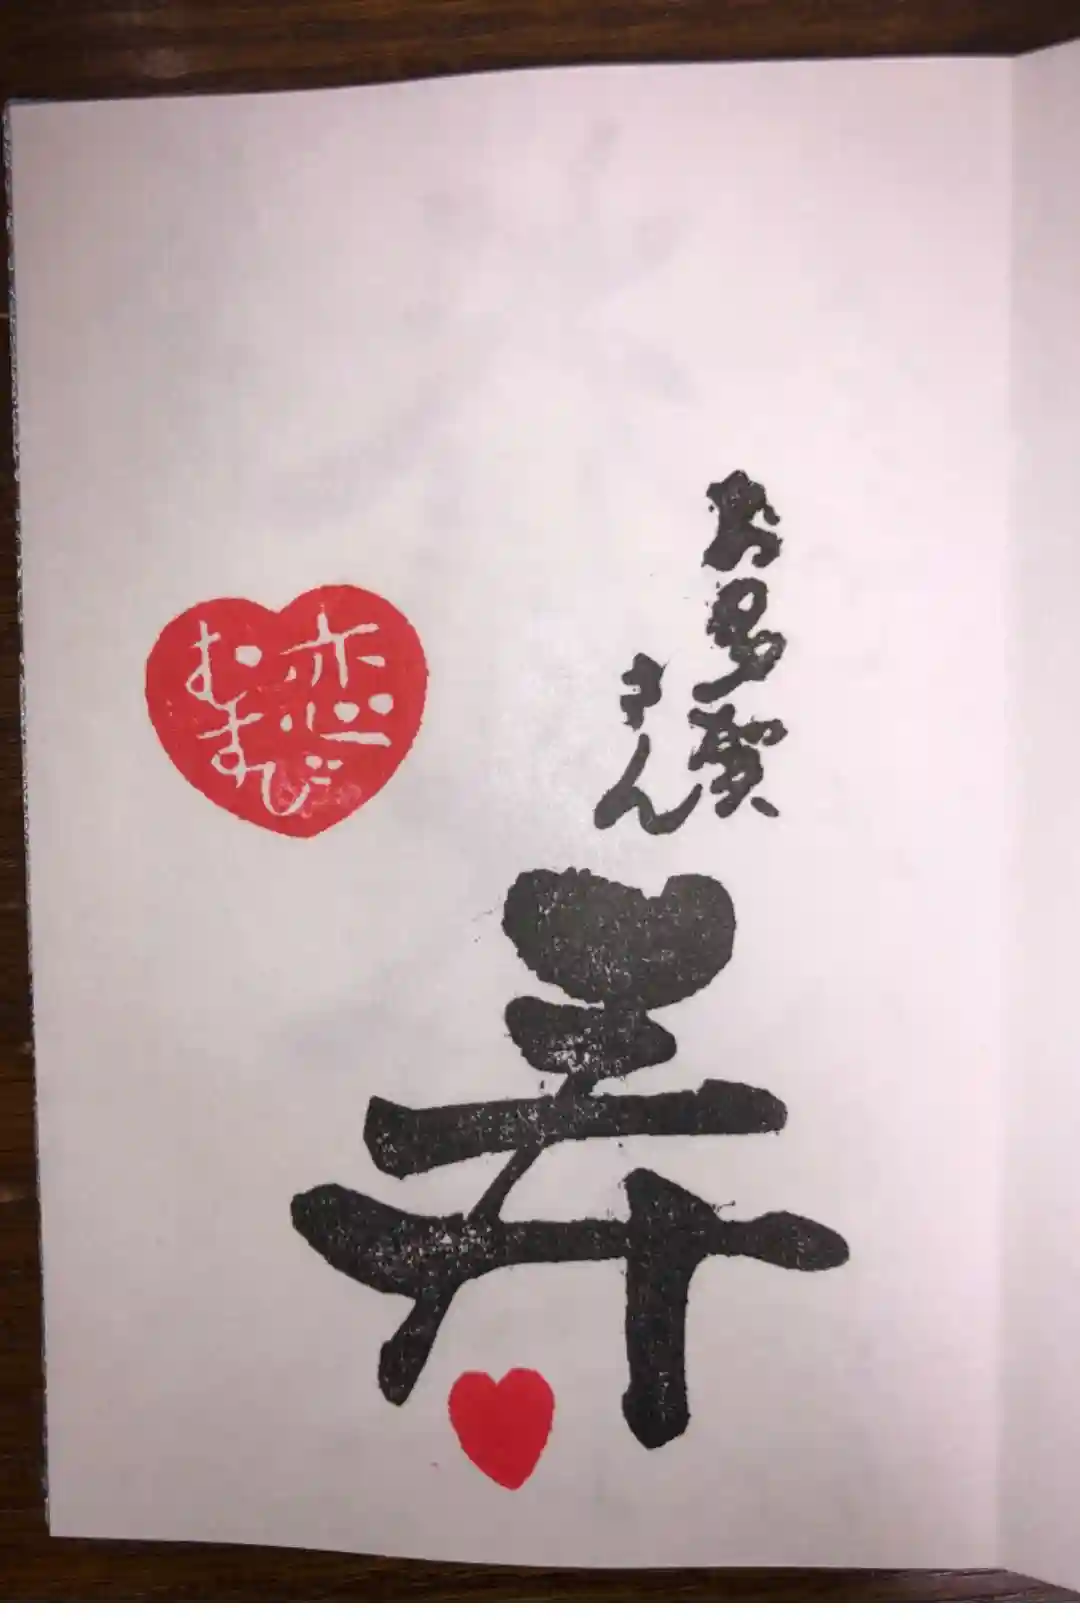 お多賀
さん
弁
恋
むすび